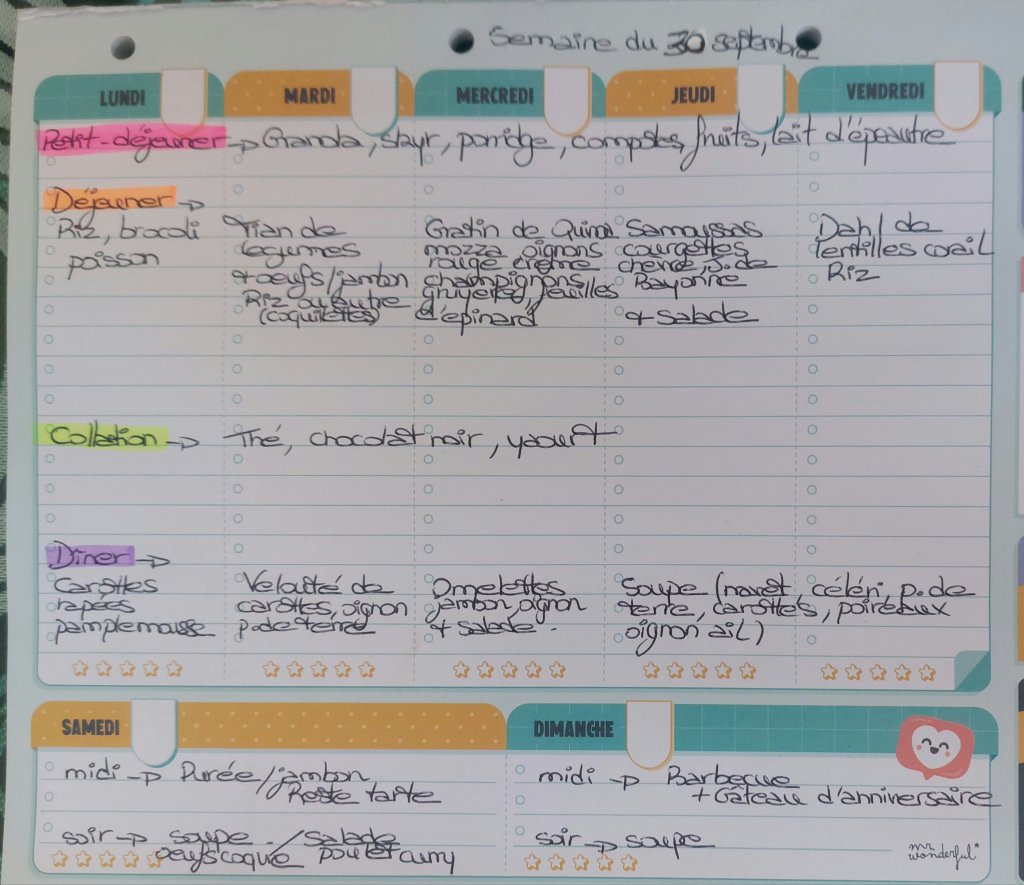 Semaine du 30 septembre
LUNDI MARDI MERCREDI JEUDI VENDREDI
Petit-déjeuner → Granola, skyr, porridge, compotes, fruits, lait d'épeautre
Déjeuner →
Riz, brocoli
poisson
Tian de
legumes
+ oeufs/jambon
Riz ou autre
(coquillettes)
Gratin de Quinoa
mozza oignons
rouge crème
champignons
gruyère, feuilles
d'épinard
Samoussas
courgettes
chèvre, j. de
Bayonne
+ salade
Dahl de
lentilles corail
Riz
Collation → Thé, chocolat noir, yaourt
Dîner →
Carottes
rapées
pamplemousse
Velouté de
carottes, oignon
p. de terre
Omelettes
jambon, oignon
+ salade.
Soupe (navet, céléri, p. de
terre, carottes, poireaux
oignon ail)
SAMEDI
midi → Purée/jambon
Reste tarte
soir → soupe / salade
oeufs coque poulet curry
DIMANCHE
midi → Barbecue
+ Gâteau d'anniversaire
soir → soupe
mr.
wonderful*